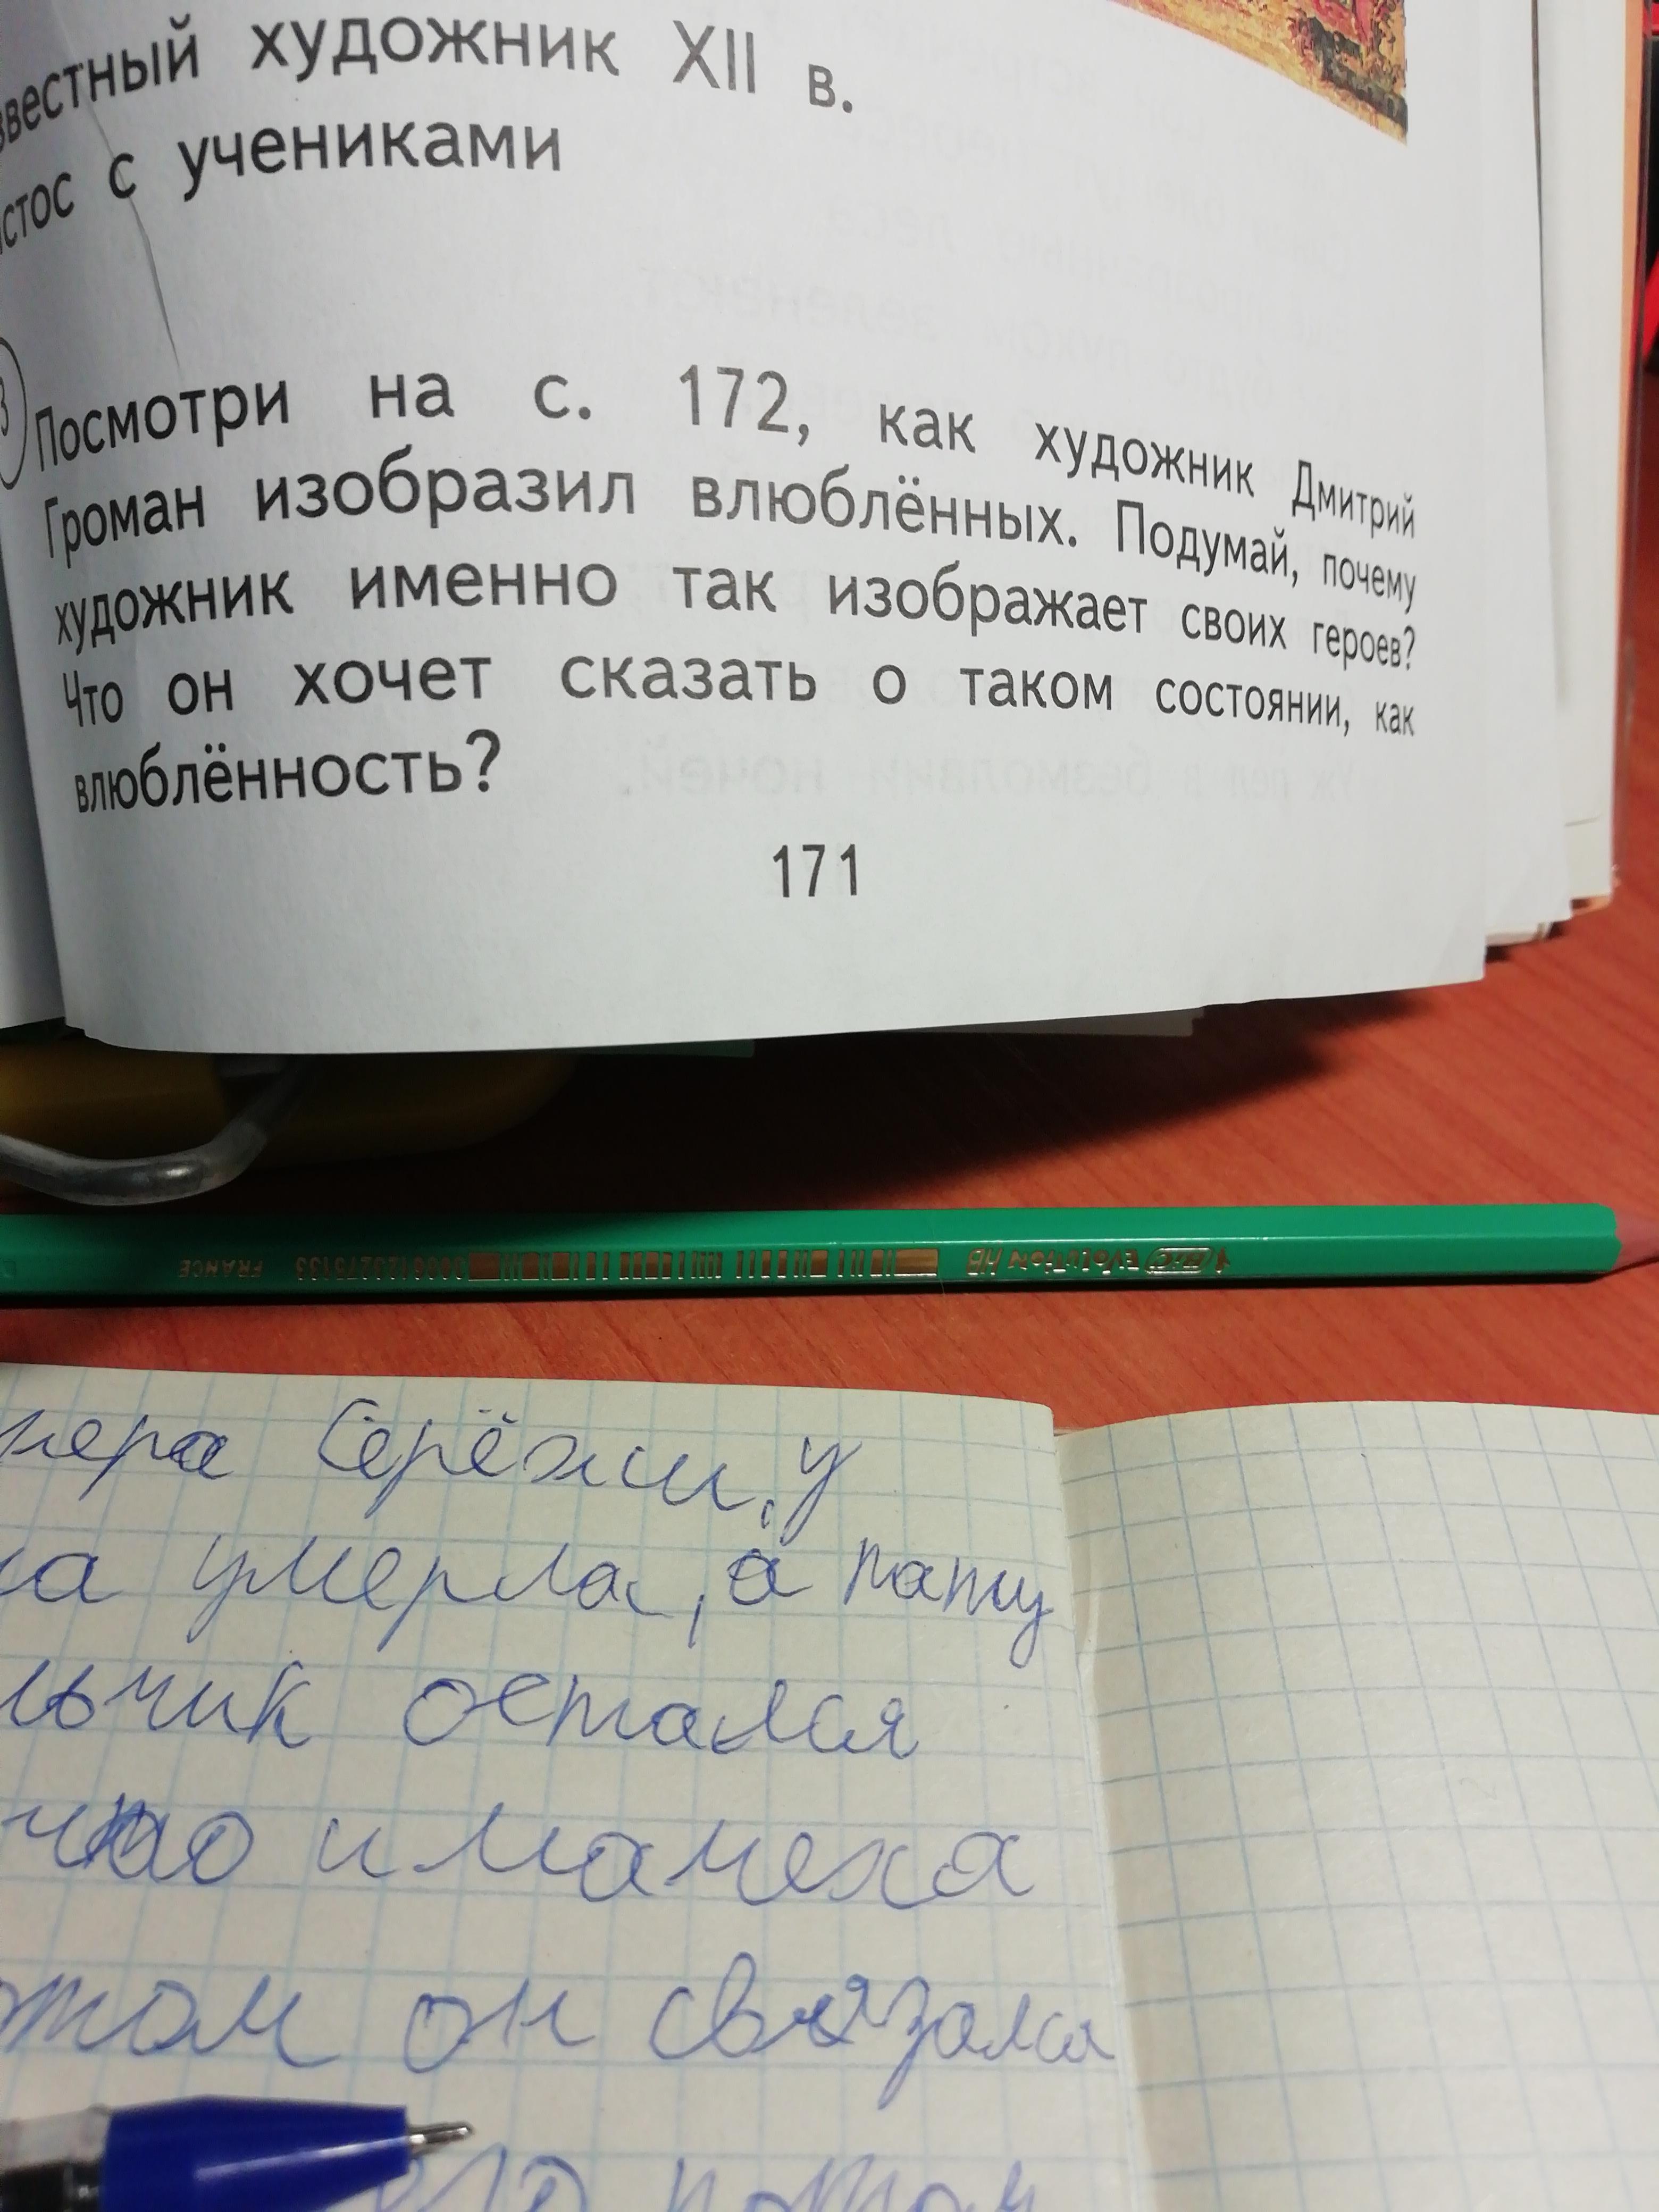 художник XII в.
с учениками
Посмотри на с. 172, как художник Дмитрий
Громан изобразил влюблённых. Подумай, почему
художник именно так изображает своих героев?
Что он хочет сказать о таком состоянии, как
влюблённость?
171
BIC EVOLUTION HB FRANCE
Серёжи, у
умерла, а папу
остался
и мачеха
он связался